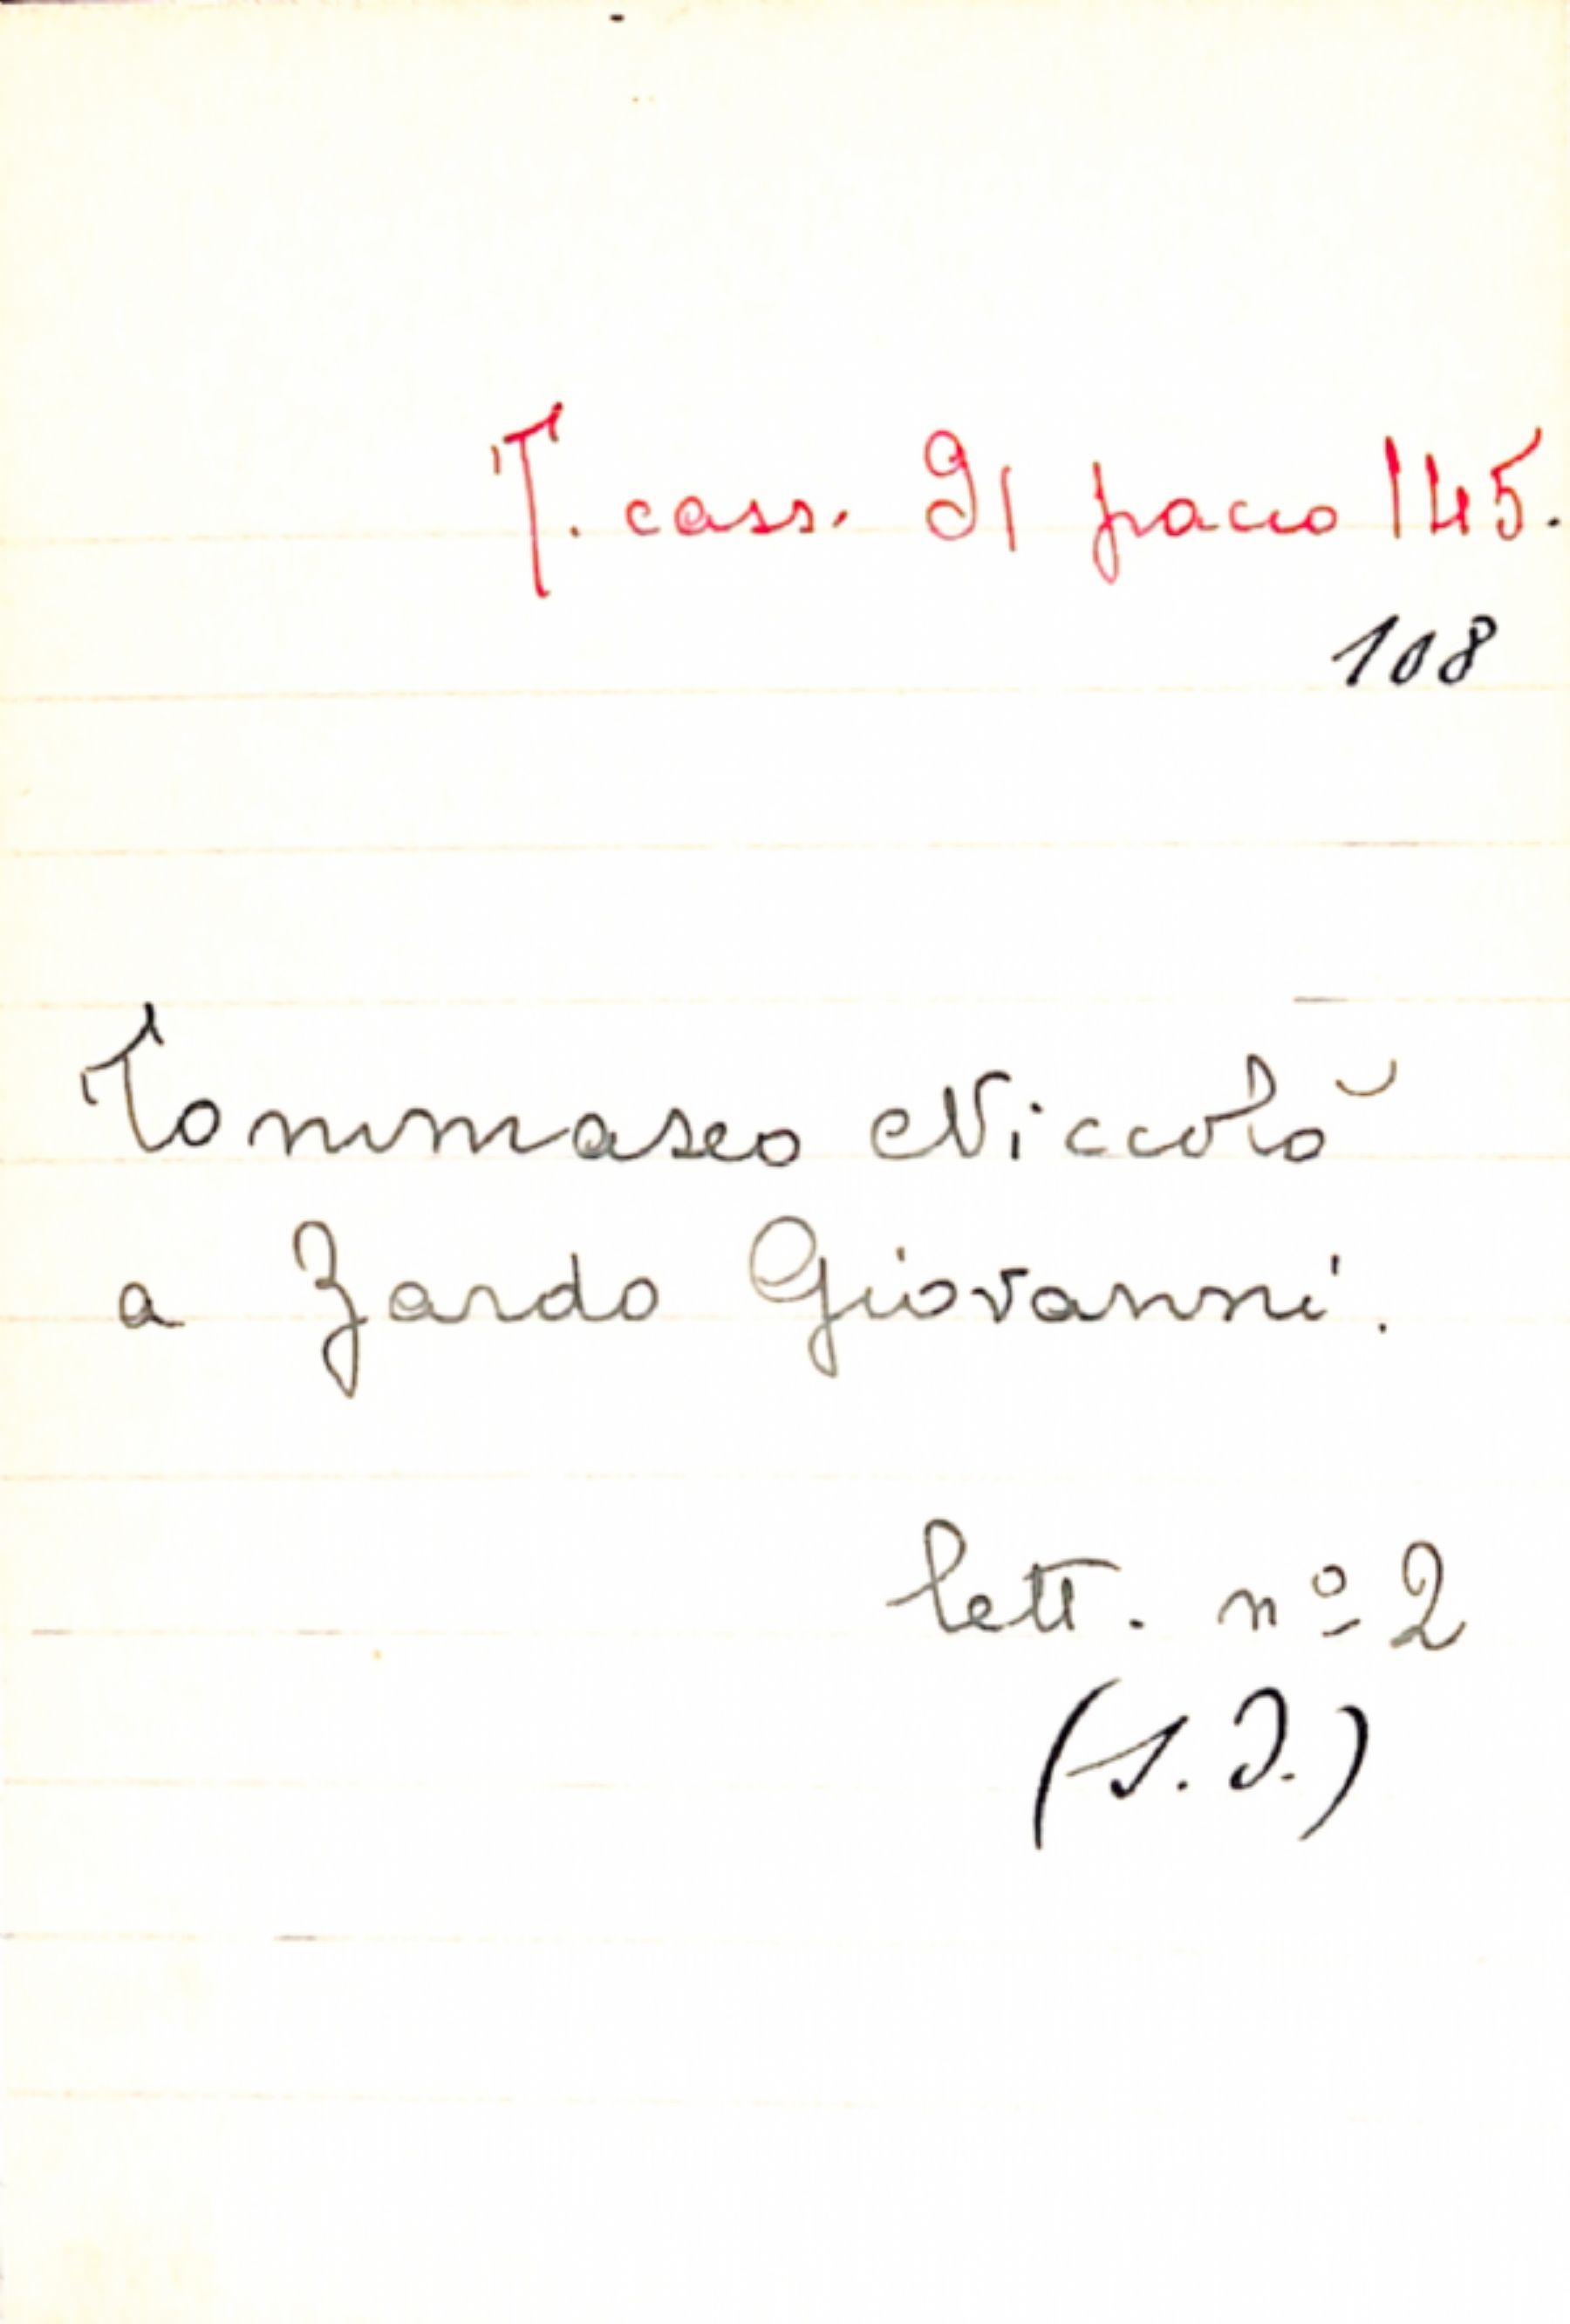 T. cass. 91 pacco 145.
108
Tommaseo Niccolò
a Zardo Giovanni.
lett. nº 2
(s. d.)